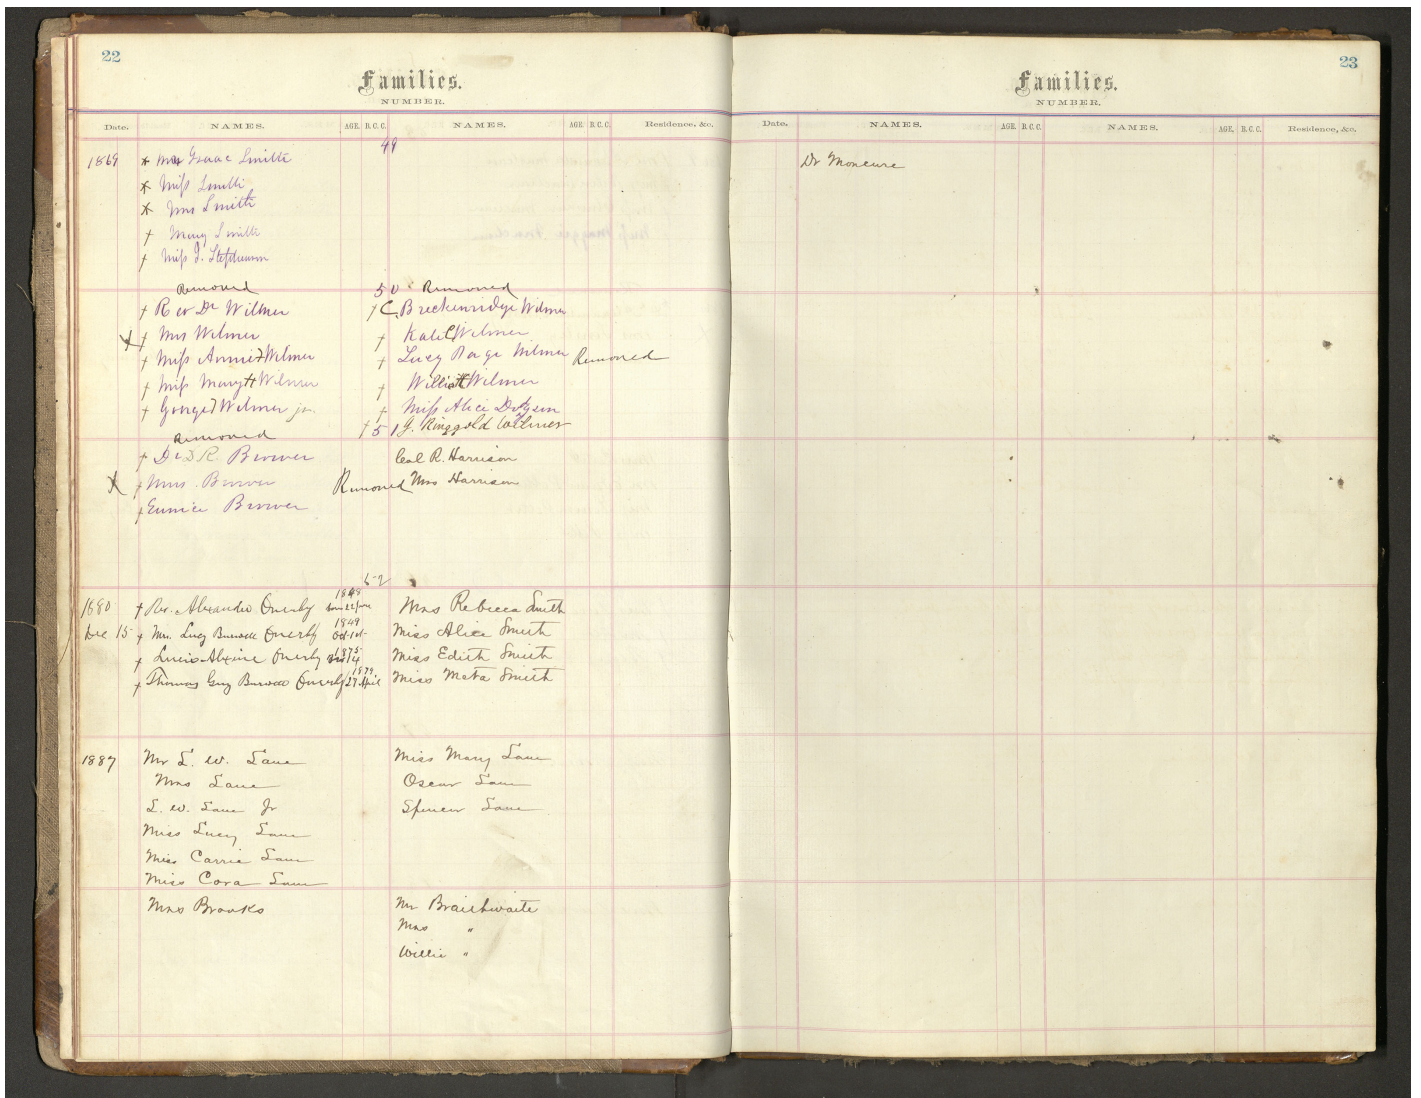 22
Families.
NUMBER.
Date. NAMES. AGE. B.C.C. NAMES. AGE. B.C.C. Residence, &c.
49
1869 * Isaac Smith
* Miss Smith
* Mrs Smith
† Mary Smith
† Miss J. Stephenson
Removed 50 Removed
† Rev Dr Wilmer † C. Breckenridge Wilmer
X † Mrs Wilmer † Kate C Wilmer
† Miss Annie Wilmer † Lucy Page Wilmer Removed
† Miss Mary H Wilmer † Willie H Wilmer
† George T Wilmer jr. † Miss Alice
Removed † 51 G. Ringgold Wilmer
† Dr D R. Brower Col R. Harrison
X † Mrs. Brower Removed Mrs Harrison
† Eunice Brower
52
1880 † Rev. Alexander Overby 1848 Mrs Rebecca Smith
Dec 15 † Mrs. Lucy Burwell Overby 1849 Oct 1st Miss Alice Smith
† Overby 1875 Miss Edith Smith
† Thomas Guy Burwell Overby 1879 27 April Miss Meta Smith
1887 Mr L. W. Lane Miss Mary Lane
Mrs Lane Oscar Lane
L. W. Lane Jr Spencer Lane
Miss Lucy Lane
Miss Carrie Lane
Miss Cora Lane
Mrs Brooks Mr Braithwaite
Mrs "
Willie "
23
Families.
NUMBER.
Date. NAMES. AGE. B.C.C. NAMES. AGE. B.C.C. Residence, &c.
Dr Moncure